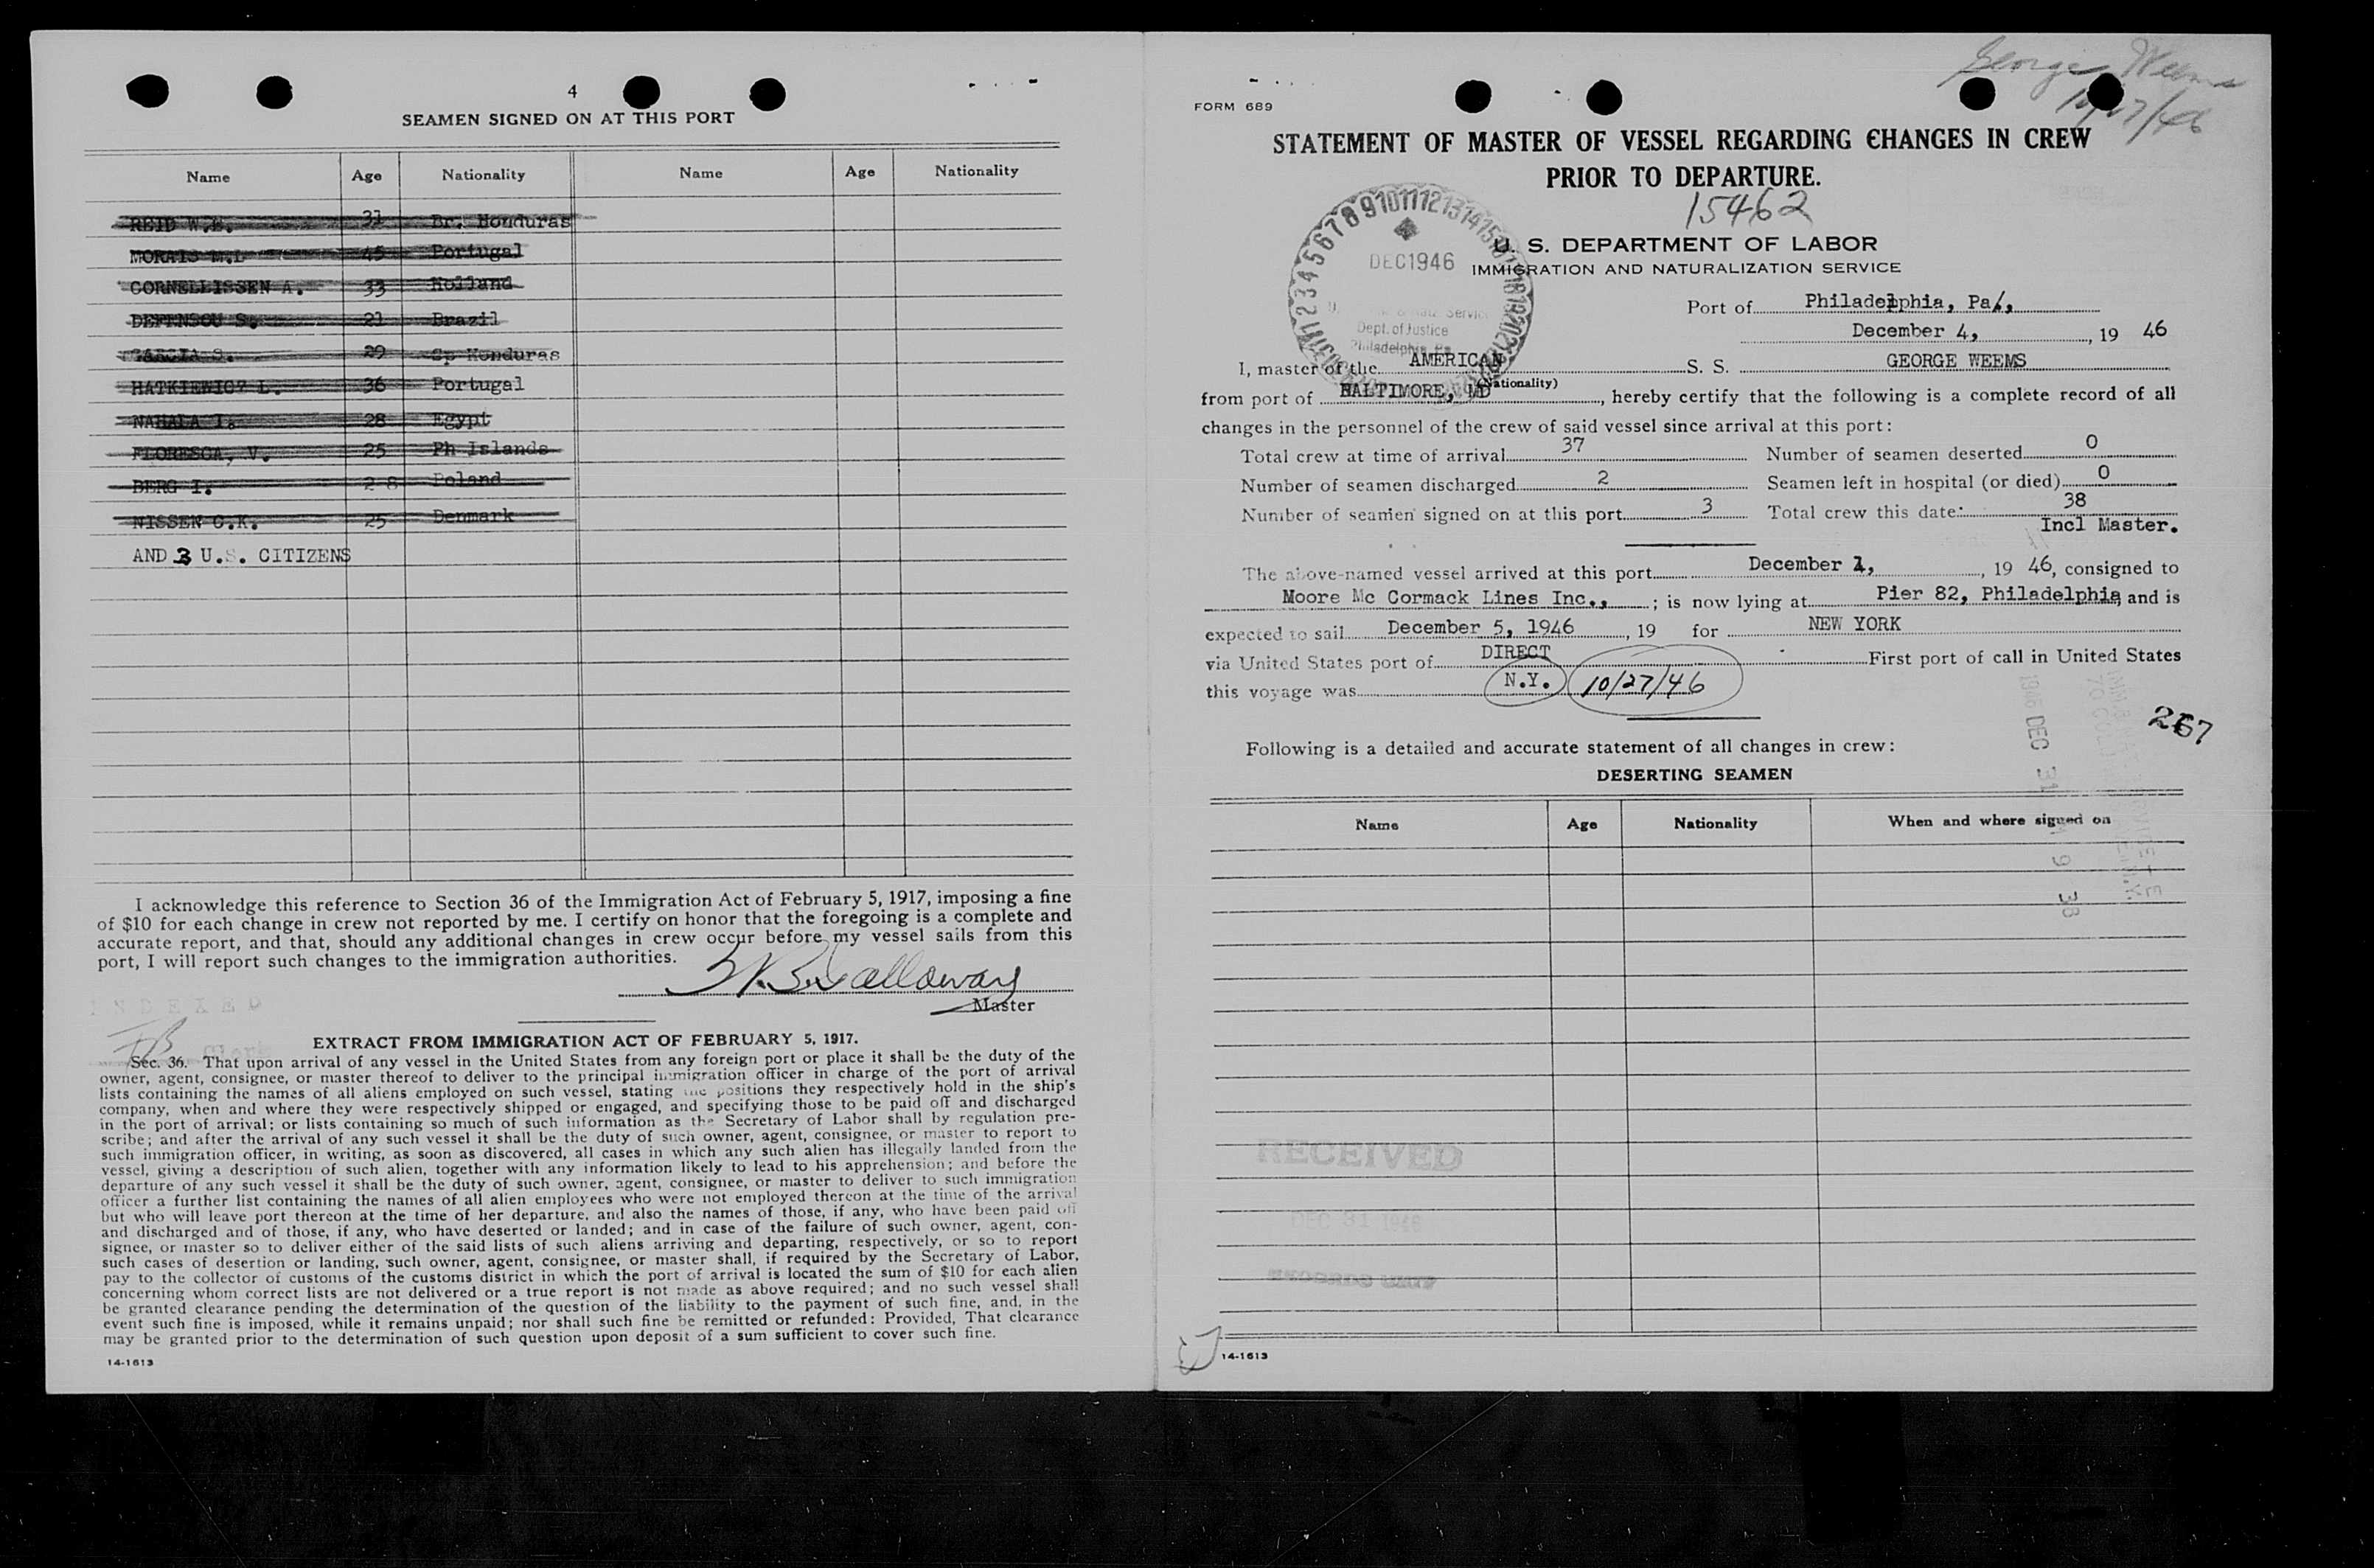 4
SEAMEN SIGNED ON AT THIS PORT
Name Age Nationality Name Age Nationality
REID W.E. 31 Br. Honduras
MORAIS M.L 45 Portugal
CORNELLISSEN A. 33 Holland
DEFENSOU S. 21 Brazil
GARCIA S. 29 Sp Honduras
HATKIEWICZ L. 36 Portugal
NAHALA I. 28 Egypt
FLORESCA, V. 25 Ph Islands
BERG I. 28 Poland
NISSEN C.K. 25 Denmark
AND 3 U.S. CITIZENS
I acknowledge this reference to Section 36 of the Immigration Act of February 5, 1917, imposing a fine
of $10 for each change in crew not reported by me. I certify on honor that the foregoing is a complete and
accurate report, and that, should any additional changes in crew occur before my vessel sails from this
port, I will report such changes to the immigration authorities.
Master
INDEXED
EXTRACT FROM IMMIGRATION ACT OF FEBRUARY 5, 1917.
Sec. 36. That upon arrival of any vessel in the United States from any foreign port or place it shall be the duty of the
owner, agent, consignee, or master thereof to deliver to the principal immigration officer in charge of the port of arrival
lists containing the names of all aliens employed on such vessel, stating the positions they respectively hold in the ship's
company, when and where they were respectively shipped or engaged, and specifying those to be paid off and discharged
in the port of arrival; or lists containing so much of such information as the Secretary of Labor shall by regulation pre-
scribe; and after the arrival of any such vessel it shall be the duty of such owner, agent, consignee, or master to report to
such immigration officer, in writing, as soon as discovered, all cases in which any such alien has illegally landed from the
vessel, giving a description of such alien, together with any information likely to lead to his apprehension; and before the
departure of any such vessel it shall be the duty of such owner, agent, consignee, or master to deliver to such immigration
officer a further list containing the names of all alien employees who were not employed thereon at the time of the arrival
but who will leave port thereon at the time of her departure, and also the names of those, if any, who have been paid off
and discharged and of those, if any, who have deserted or landed; and in case of the failure of such owner, agent, con-
signee, or master so to deliver either of the said lists of such aliens arriving and departing, respectively, or so to report
such cases of desertion or landing, such owner, agent, consignee, or master shall, if required by the Secretary of Labor,
pay to the collector of customs of the customs district in which the port of arrival is located the sum of $10 for each alien
concerning whom correct lists are not delivered or a true report is not made as above required; and no such vessel shall
be granted clearance pending the determination of the question of the liability to the payment of such fine, and, in the
event such fine is imposed, while it remains unpaid; nor shall such fine be remitted or refunded: Provided, That clearance
may be granted prior to the determination of such question upon deposit of a sum sufficient to cover such fine.
14-1613
George Weems
10/27/46
FORM 689
STATEMENT OF MASTER OF VESSEL REGARDING CHANGES IN CREW
PRIOR TO DEPARTURE.
15462
U. S. DEPARTMENT OF LABOR
IMMIGRATION AND NATURALIZATION SERVICE
DEC 1946
Dept. of Justice
Philadelphia, Pa
Port of Philadelphia, Pa.,
December 4, , 19 46
I, master of the AMERICAN S. S. GEORGE WEEMS
(Nationality)
from port of BALTIMORE, MD , hereby certify that the following is a complete record of all
changes in the personnel of the crew of said vessel since arrival at this port:
Total crew at time of arrival 37 Number of seamen deserted 0
Number of seamen discharged 2 Seamen left in hospital (or died) 0
Number of seamen signed on at this port 3 Total crew this date: 38
Incl Master.
The above-named vessel arrived at this port December 1, , 19 46, consigned to
Moore Mc Cormack Lines Inc., ; is now lying at Pier 82, Philadelphia and is
expected to sail December 5, 1946 , 19 for NEW YORK
via United States port of DIRECT First port of call in United States
this voyage was N.Y. 10/27/46
267
Following is a detailed and accurate statement of all changes in crew:
DESERTING SEAMEN
Name Age Nationality When and where signed on
1946 DEC 31 9 38
RECEIVED
DEC 31 1946
RECORDS UNIT
14-1613